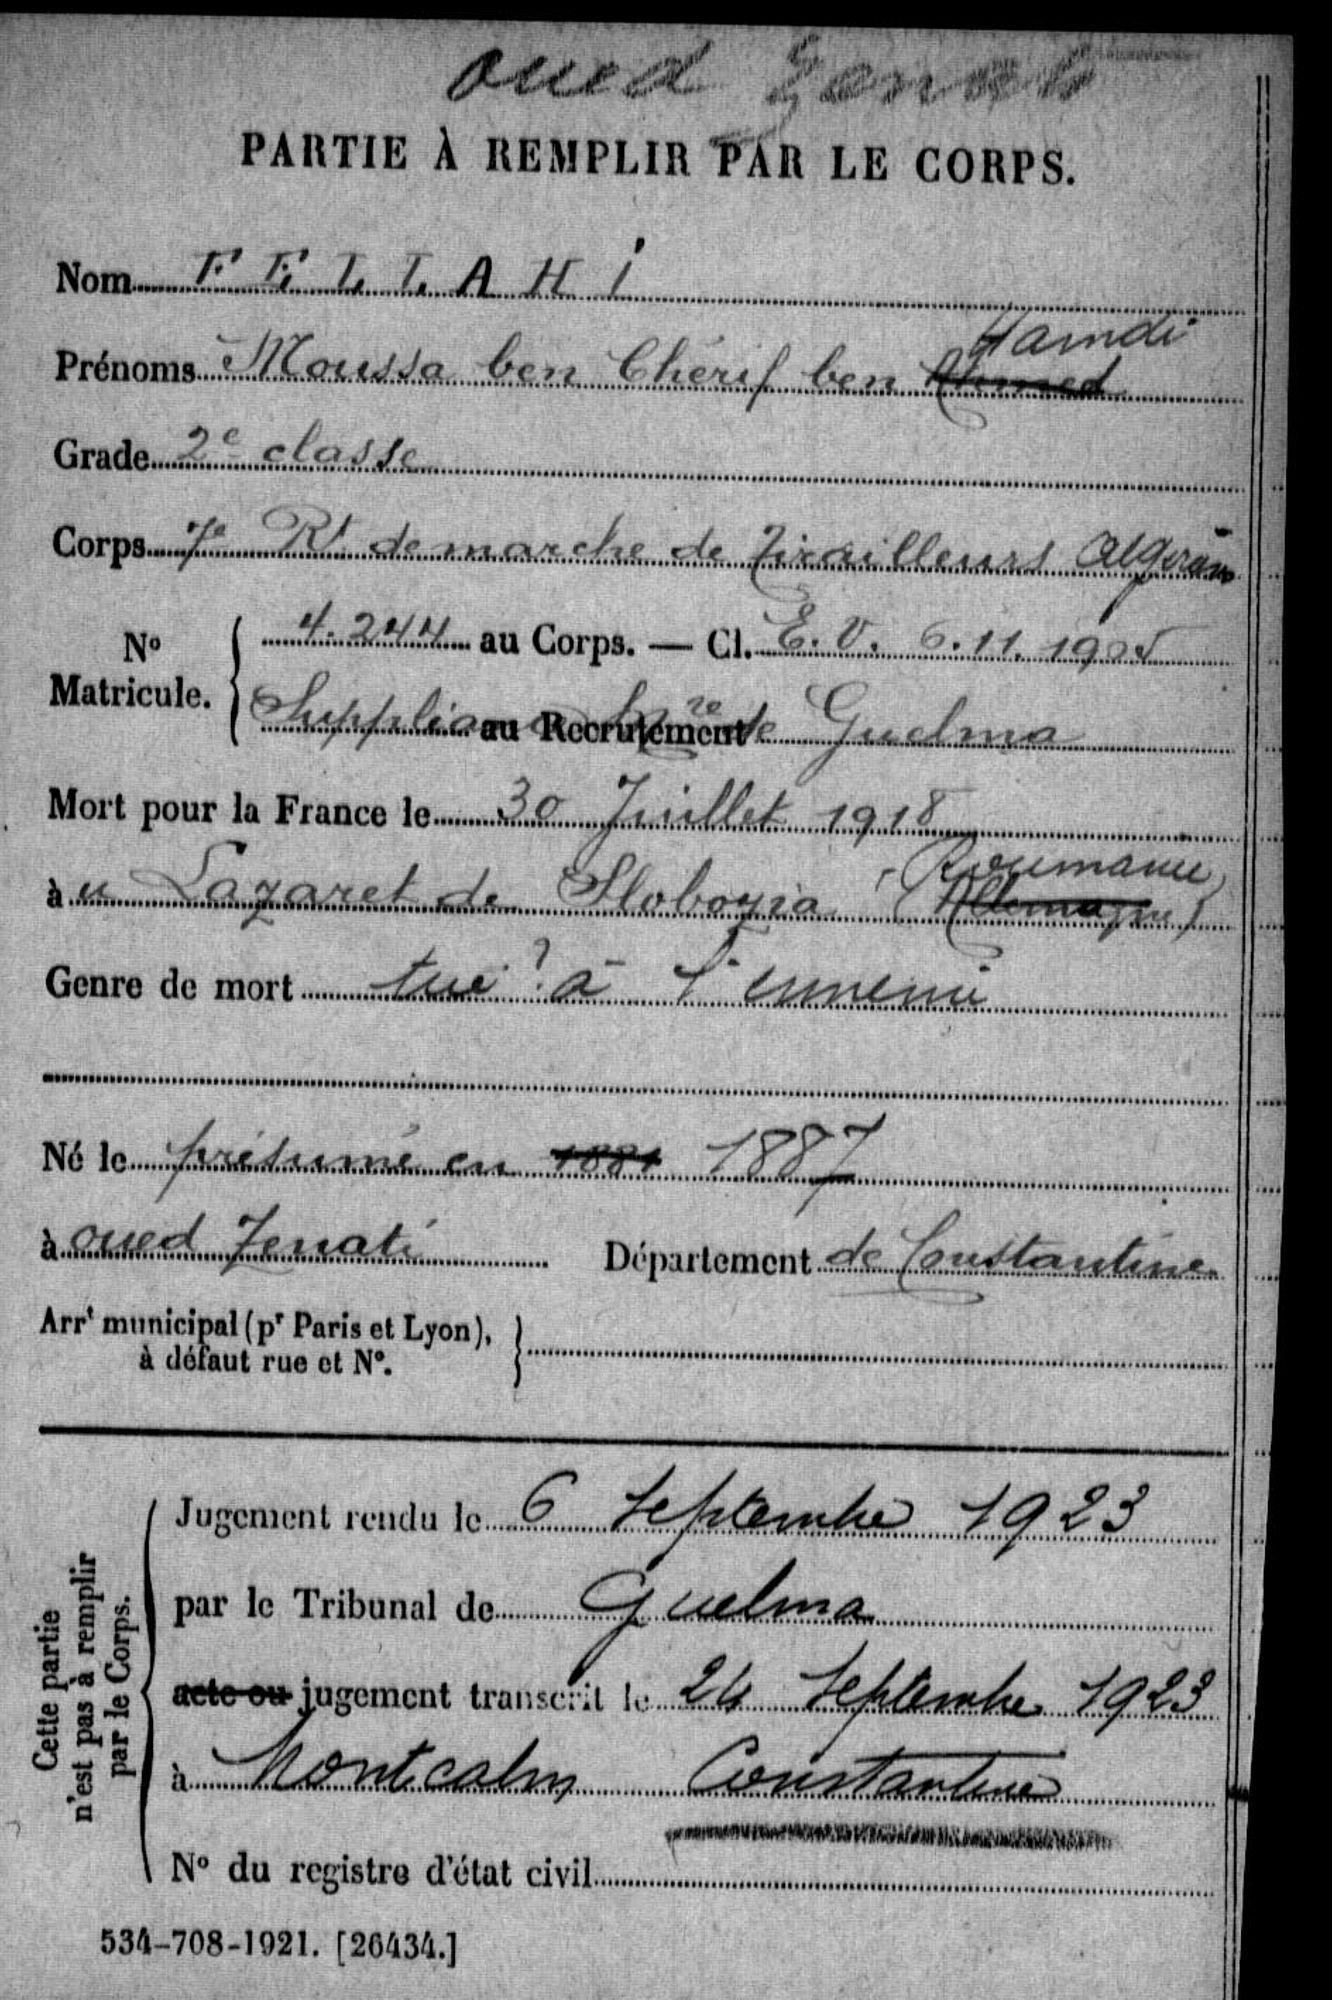 oued Zenati
PARTIE À REMPLIR PAR LE CORPS.
Nom FELLAHI
Hamdi
Prénoms Moussa ben Chérif ben Ahmed
Grade 2e classe
Corps 7e Rt de marche de Tirailleurs Algériens
No Matricule. 4.244 au Corps. — Cl. E.V. 6.11.1905
au Recrutement Guelma
Mort pour la France le 30 Juillet 1918
Roumanie
à u Lazaret de Slobozia (Allemagne)
Genre de mort tué ? à l'ennemi
Né le présumé en 1881 1887
à oued Zenati Département de Constantine
Arrt municipal (pr Paris et Lyon),
à défaut rue et No.
Cette partie
n'est pas à remplir
par le Corps.
Jugement rendu le 6 Septembre 1923
par le Tribunal de Guelma
acte ou jugement transcrit le 24 Septembre 1923
à Montcalm Constantine
No du registre d'état civil
534-708-1921. [26434.]